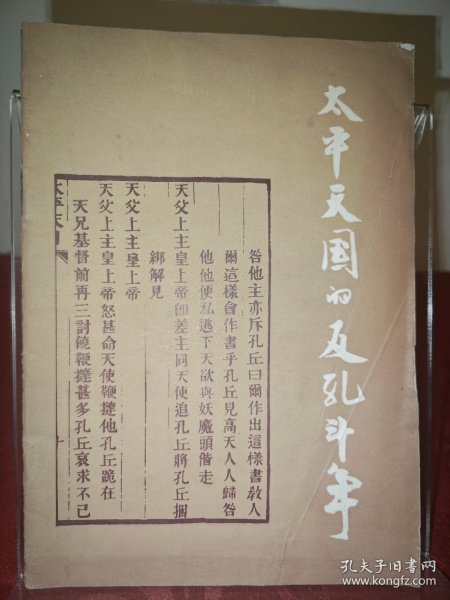 太平天国的反孔斗争
咎他主亦斥孔丘曰爾作出這樣書敎人
爾這樣會作書乎孔丘見高天人人歸咎
他他便私逃下天欲與妖魔頭偕走
天父上主皇上帝卽差主同天使追孔丘將孔丘捆
綁解見
天父上主皇上帝
天父上主皇上帝怒甚命天使鞭撻他孔丘跪在
天兄基督前再三討饒鞭撻甚多孔丘哀求不已
孔夫子旧书网
www.kongfz.com